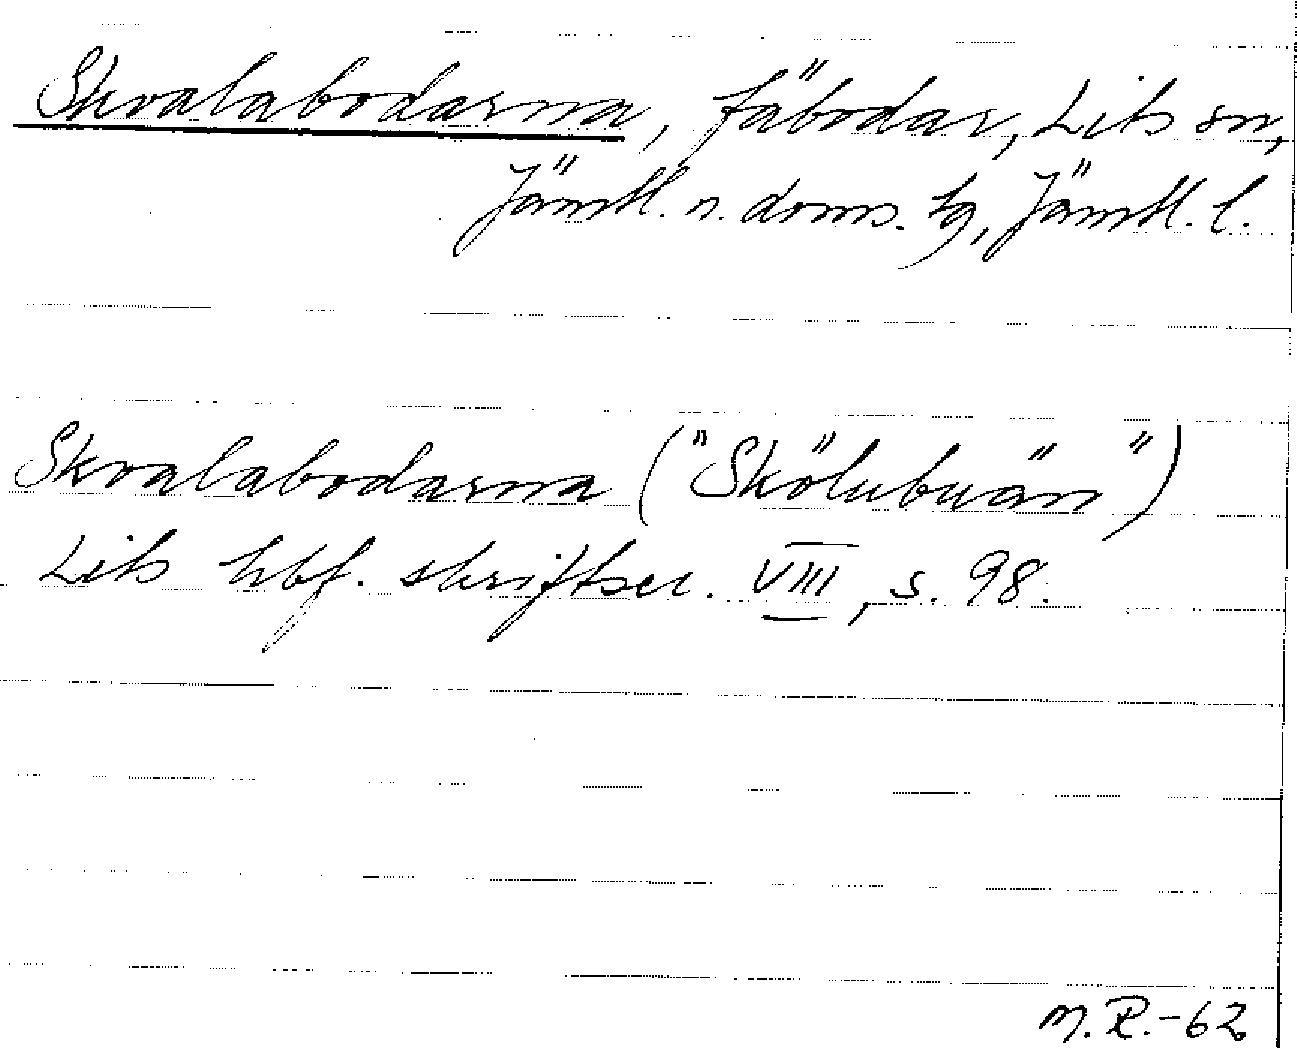 Skvalabodarna, fäbodar, Lits sn,
Jämtl. n. doms. tg, Jämtl. l.
Skvalabodarna ("Skölubuän")
Lits hbf. skriftser. VIII, s. 98.
M.R.-62